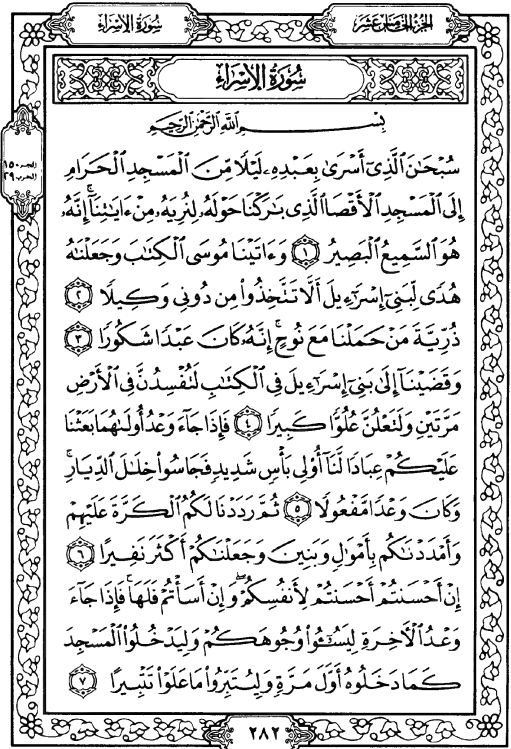 سُورَةُ الإِسْرَاءِ
الجزء الخامس عشر
سُورَةُ الإِسْرَاءِ
الجزء ١٥
الحزب ٢٩
بِسْمِ ٱللَّهِ ٱلرَّحْمَٰنِ ٱلرَّحِيمِ
سُبْحَٰنَ ٱلَّذِىٓ أَسْرَىٰ بِعَبْدِهِۦ لَيْلًا مِّنَ ٱلْمَسْجِدِ ٱلْحَرَامِ
إِلَى ٱلْمَسْجِدِ ٱلْأَقْصَا ٱلَّذِى بَٰرَكْنَا حَوْلَهُۥ لِنُرِيَهُۥ مِنْ ءَايَٰتِنَآ ۚ إِنَّهُۥ
هُوَ ٱلسَّمِيعُ ٱلْبَصِيرُ ١ وَءَاتَيْنَا مُوسَى ٱلْكِتَٰبَ وَجَعَلْنَٰهُ
هُدًى لِّبَنِىٓ إِسْرَٰٓءِيلَ أَلَّا تَتَّخِذُوا۟ مِن دُونِى وَكِيلًا ٢
ذُرِّيَّةَ مَنْ حَمَلْنَا مَعَ نُوحٍ ۚ إِنَّهُۥ كَانَ عَبْدًا شَكُورًا ٣
وَقَضَيْنَآ إِلَىٰ بَنِىٓ إِسْرَٰٓءِيلَ فِى ٱلْكِتَٰبِ لَتُفْسِدُنَّ فِى ٱلْأَرْضِ
مَرَّتَيْنِ وَلَتَعْلُنَّ عُلُوًّا كَبِيرًا ٤ فَإِذَا جَآءَ وَعْدُ أُولَىٰهُمَا بَعَثْنَا
عَلَيْكُمْ عِبَادًا لَّنَآ أُو۟لِى بَأْسٍ شَدِيدٍ فَجَاسُوا۟ خِلَٰلَ ٱلدِّيَارِ ۚ
وَكَانَ وَعْدًا مَّفْعُولًا ٥ ثُمَّ رَدَدْنَا لَكُمُ ٱلْكَرَّةَ عَلَيْهِمْ
وَأَمْدَدْنَٰكُم بِأَمْوَٰلٍ وَبَنِينَ وَجَعَلْنَٰكُمْ أَكْثَرَ نَفِيرًا ٦
إِنْ أَحْسَنتُمْ أَحْسَنتُمْ لِأَنفُسِكُمْ ۖ وَإِنْ أَسَأْتُمْ فَلَهَا ۚ فَإِذَا جَآءَ
وَعْدُ ٱلْءَاخِرَةِ لِيَسُۥٓـُٔوا۟ وُجُوهَكُمْ وَلِيَدْخُلُوا۟ ٱلْمَسْجِدَ
كَمَا دَخَلُوهُ أَوَّلَ مَرَّةٍ وَلِيُتَبِّرُوا۟ مَا عَلَوْا۟ تَتْبِيرًا ٧
٢٨٢